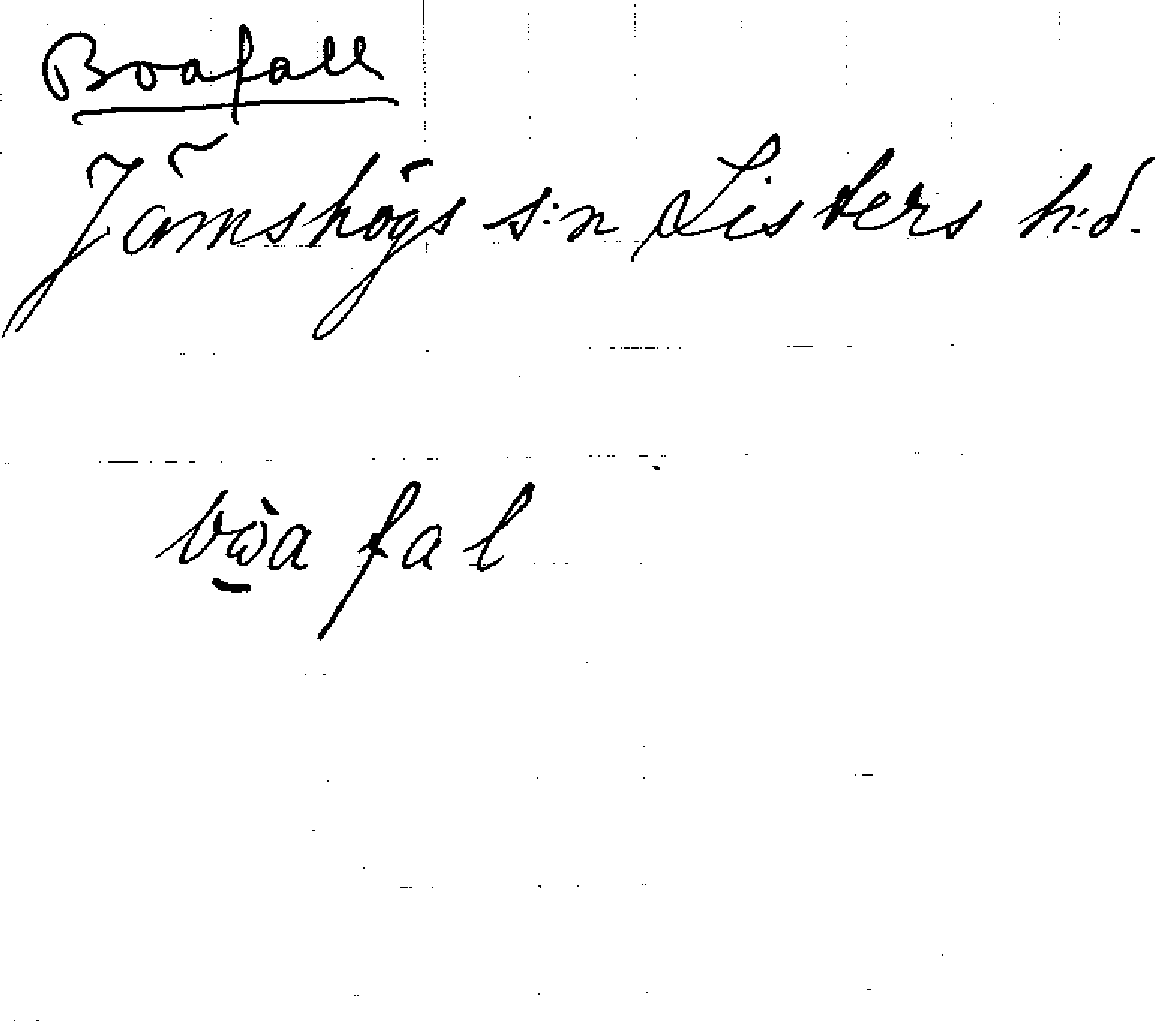 Boafall
Jämshögs s:n Listers h:d.
bὼ̠a fal